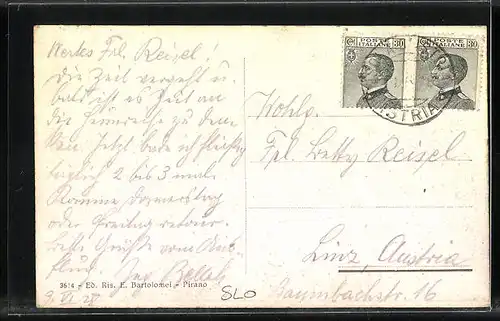 Wertes Frl. Reisel!
Die Zeit vergeht u.
bald ist es Zeit an
die Heimreise zu den-
ken. Jetzt bade ich fleißig
täglich 2 bis 3 mal.
Komme Donnerstag
oder Freitag retour.
Beste Grüße vom Aus-
flug.
POSTE ITALIANE 30
POSTE ITALIANE 30
ISTRIA
Wohlg.
Frl. Betty Reisel
Linz, Austria
Baumbachstr. 16
3614 - Ed. Ris. E. Bartolomei - Pirano
SLO